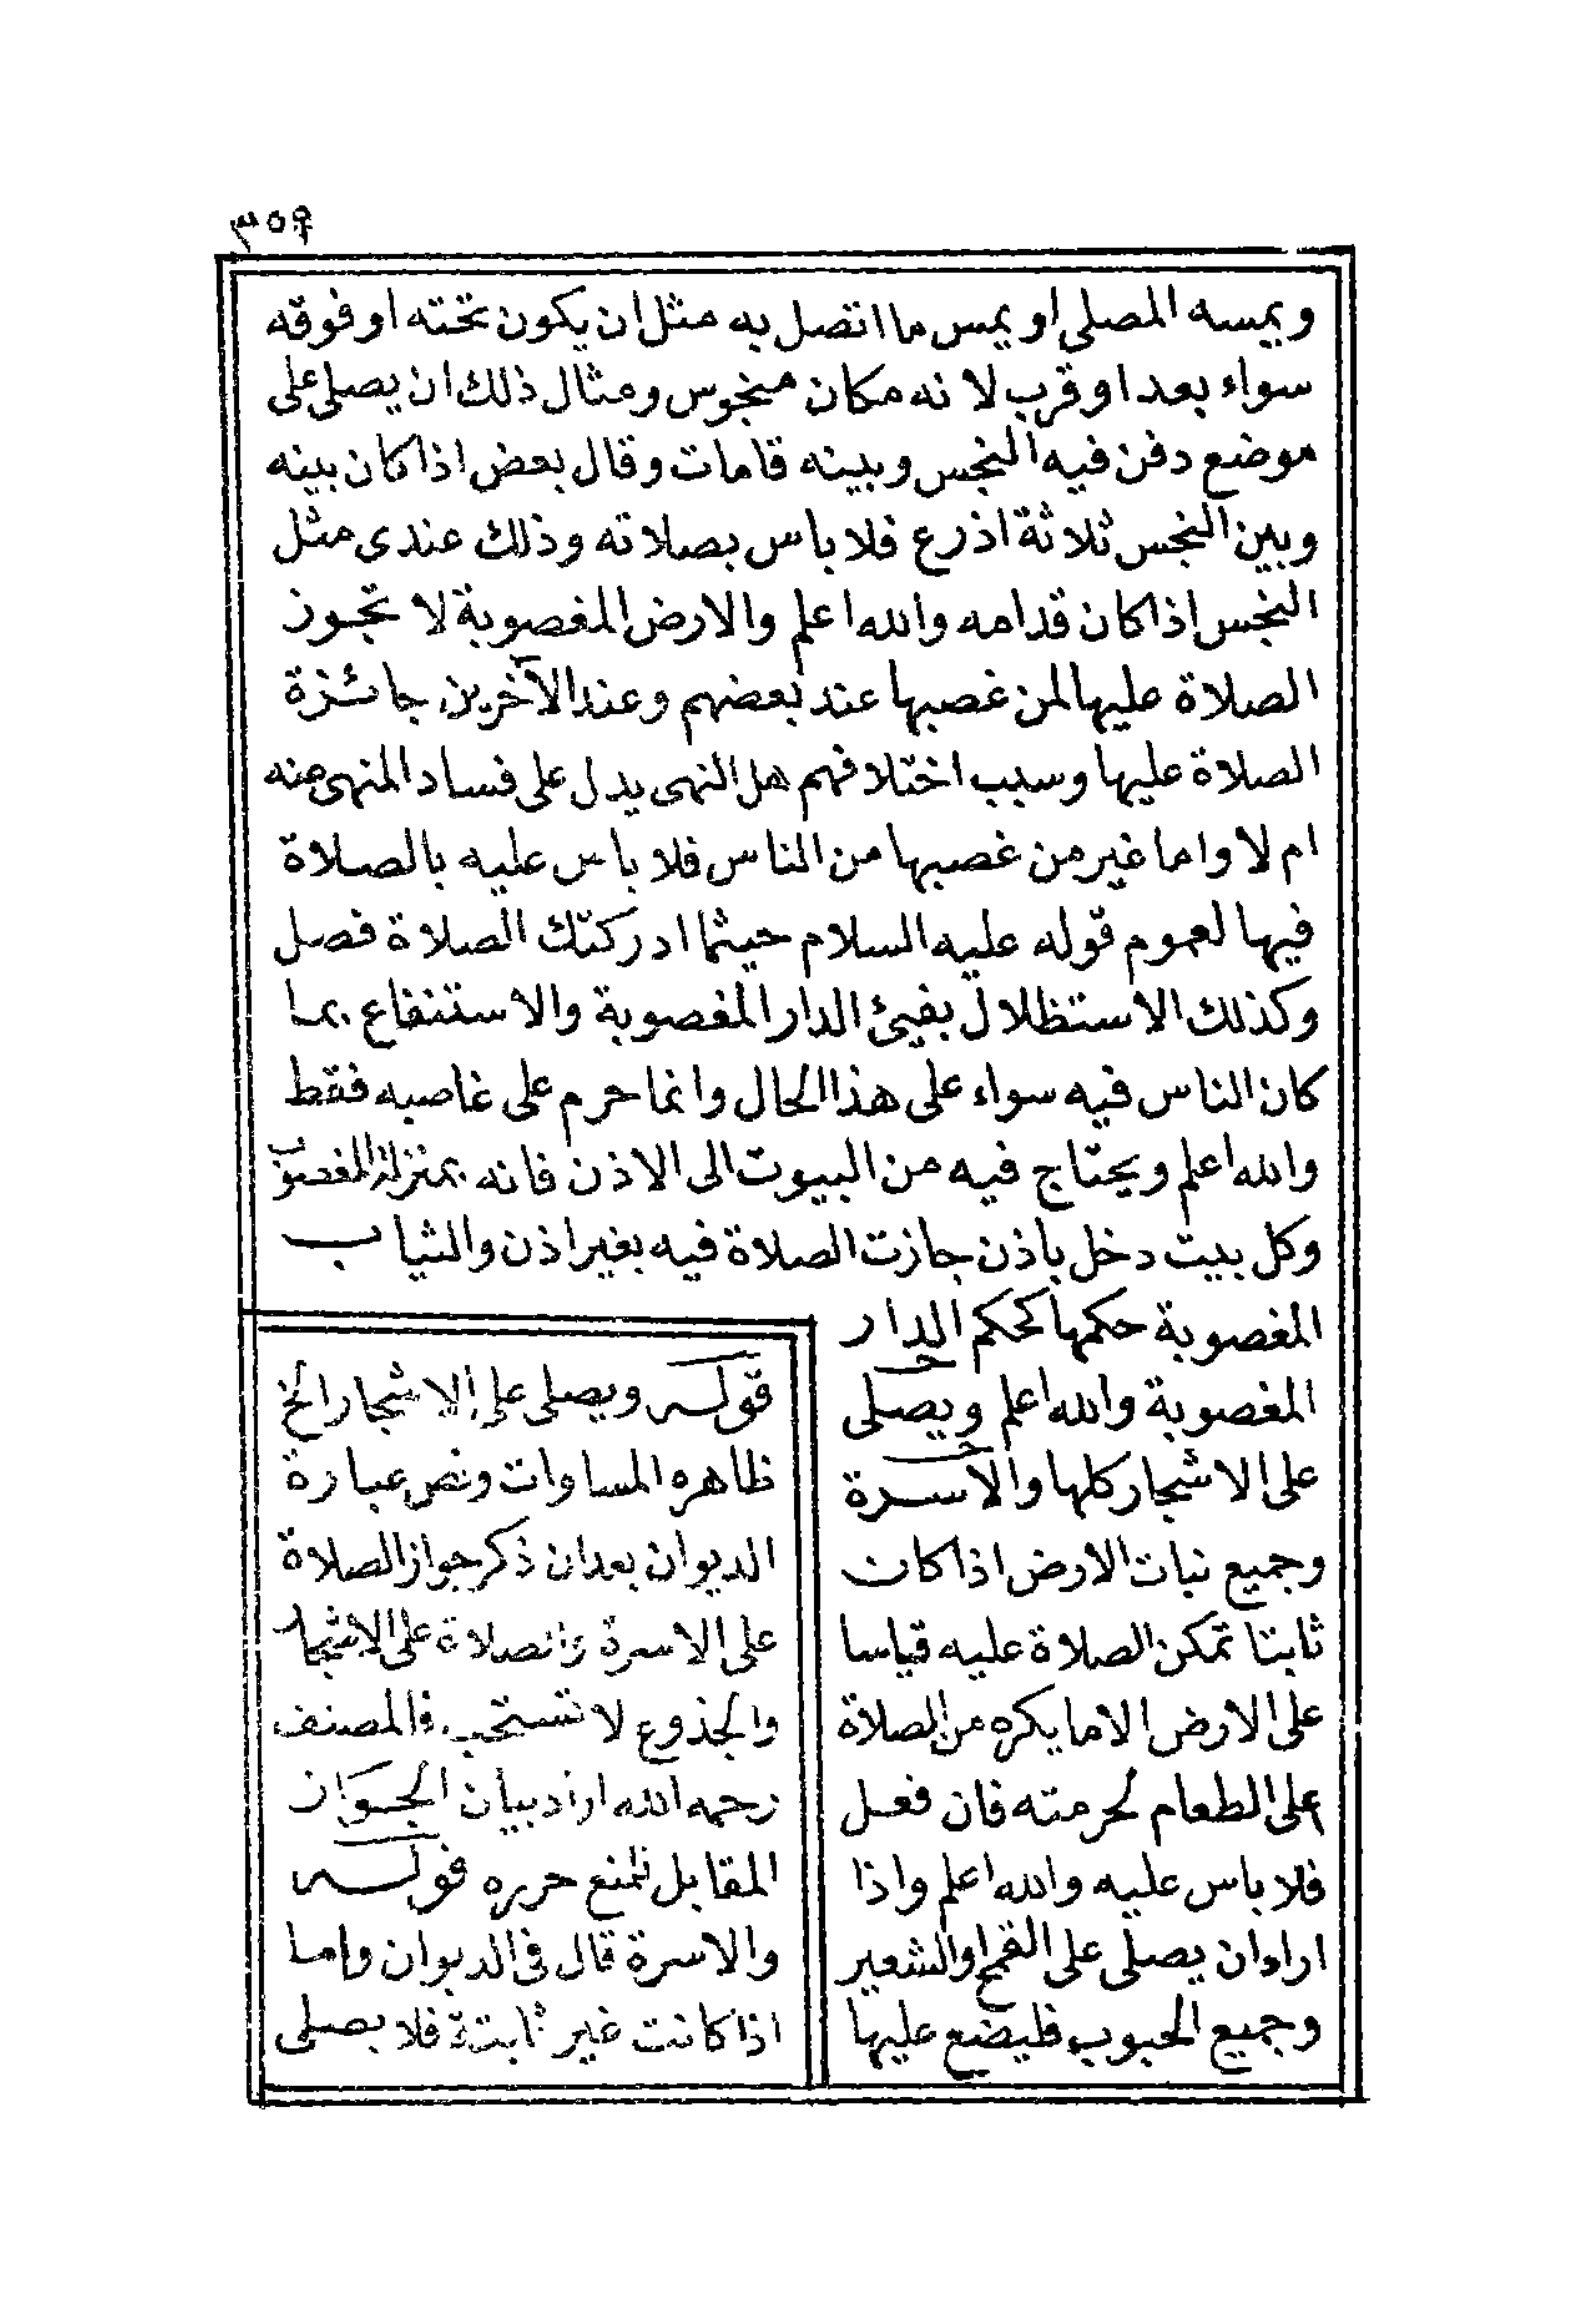 ٣٥٩
ويمسه المصلى او يمس ما اتصل به مثل ان يكون تحته او فوقه
سواء بعد او قرب لانه مكان منجوس ومثال ذلك ان يصلى على
موضع دفن فيه النجس وبينه قامات وقال بعض اذا كان بينه
وبين النجس ثلاثة اذرع فلا باس بصلاته وذلك عندى مثل
النجس اذا كان قدامه والله اعلم والارض المغصوبة لا تجوز
الصلاة عليها لمن غصبها عند بعضهم وعند الآخرين جائزة
الصلاة عليها وسبب اختلافهم هل النهى يدل على فساد المنهى عنه
ام لا واما غير من غصبها من الناس فلا باس عليه بالصلاة
فيها لعموم قوله عليه السلام حيثما ادركتك الصلاة فصل
وكذلك الاستظلال بفيئ الدار المغصوبة والاستنفاع بما
كان الناس فيه سواء على هذا الحال وانما حرم على غاصبه فقط
والله اعلم ويحتاج فيه من البيوت الى الاذن فانه بمنزلة المغصوب
وكل بيت دخل باذن جازت الصلاة فيه بغير اذن والثياب
المغصوبة حكمها كحكم الدار
المغصوبة والله اعلم ويصلى
على الاشجار كلها والاسرة
وجميع نبات الارض اذا كان
ثابتا تمكن الصلاة عليه قياسا
على الارض الا ما يكره من الصلاة
على الطعام لحرمته فان فعل
فلا باس عليه والله اعلم واذا
اراد ان يصلى على القمح او الشعير
وجميع الحبوب فليضع عليها
قوله ويصلى على الاشجار الخ
ظاهره المساوات ونص عبارة
الديوان بعد ان ذكر جواز الصلاة
على الاسرة والصلاة على الاشجار
والجذوع لا تستحب فالمصنف
رحمه الله اراد بيان الجواز
المقابل للمنع حرره قوله
والاسرة قال فى الديوان واما
اذا كانت غير ثابتة فلا يصلى